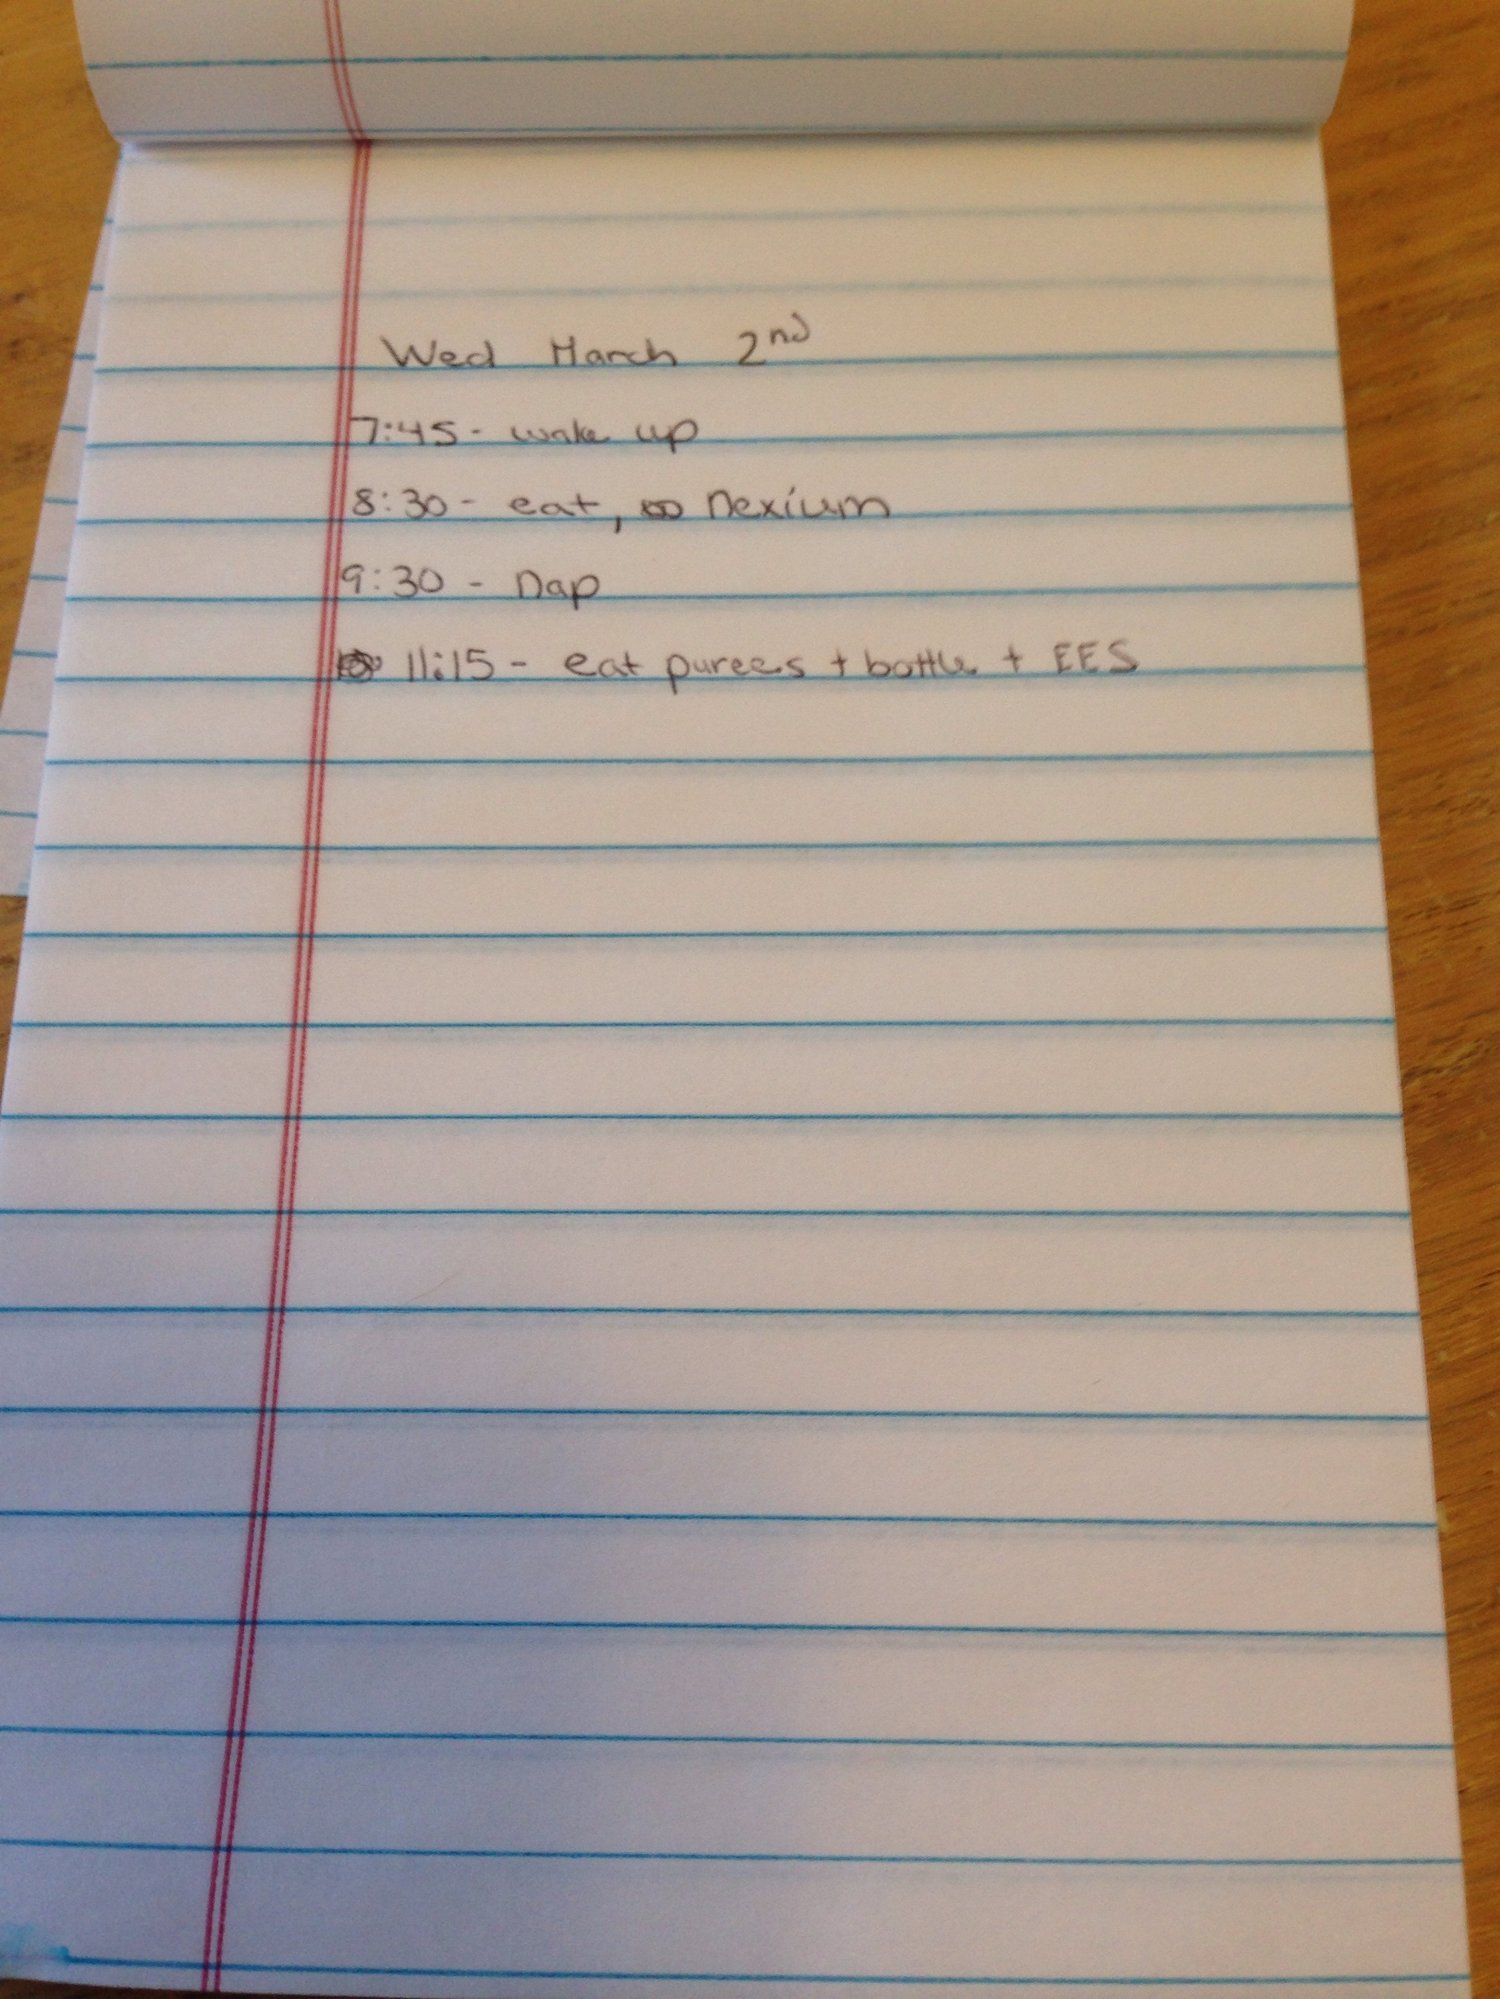 Wed March 2nd
7:45 - wake up
8:30 - eat, nexium
9:30 - nap
11:15 - eat purees + bottle + EES